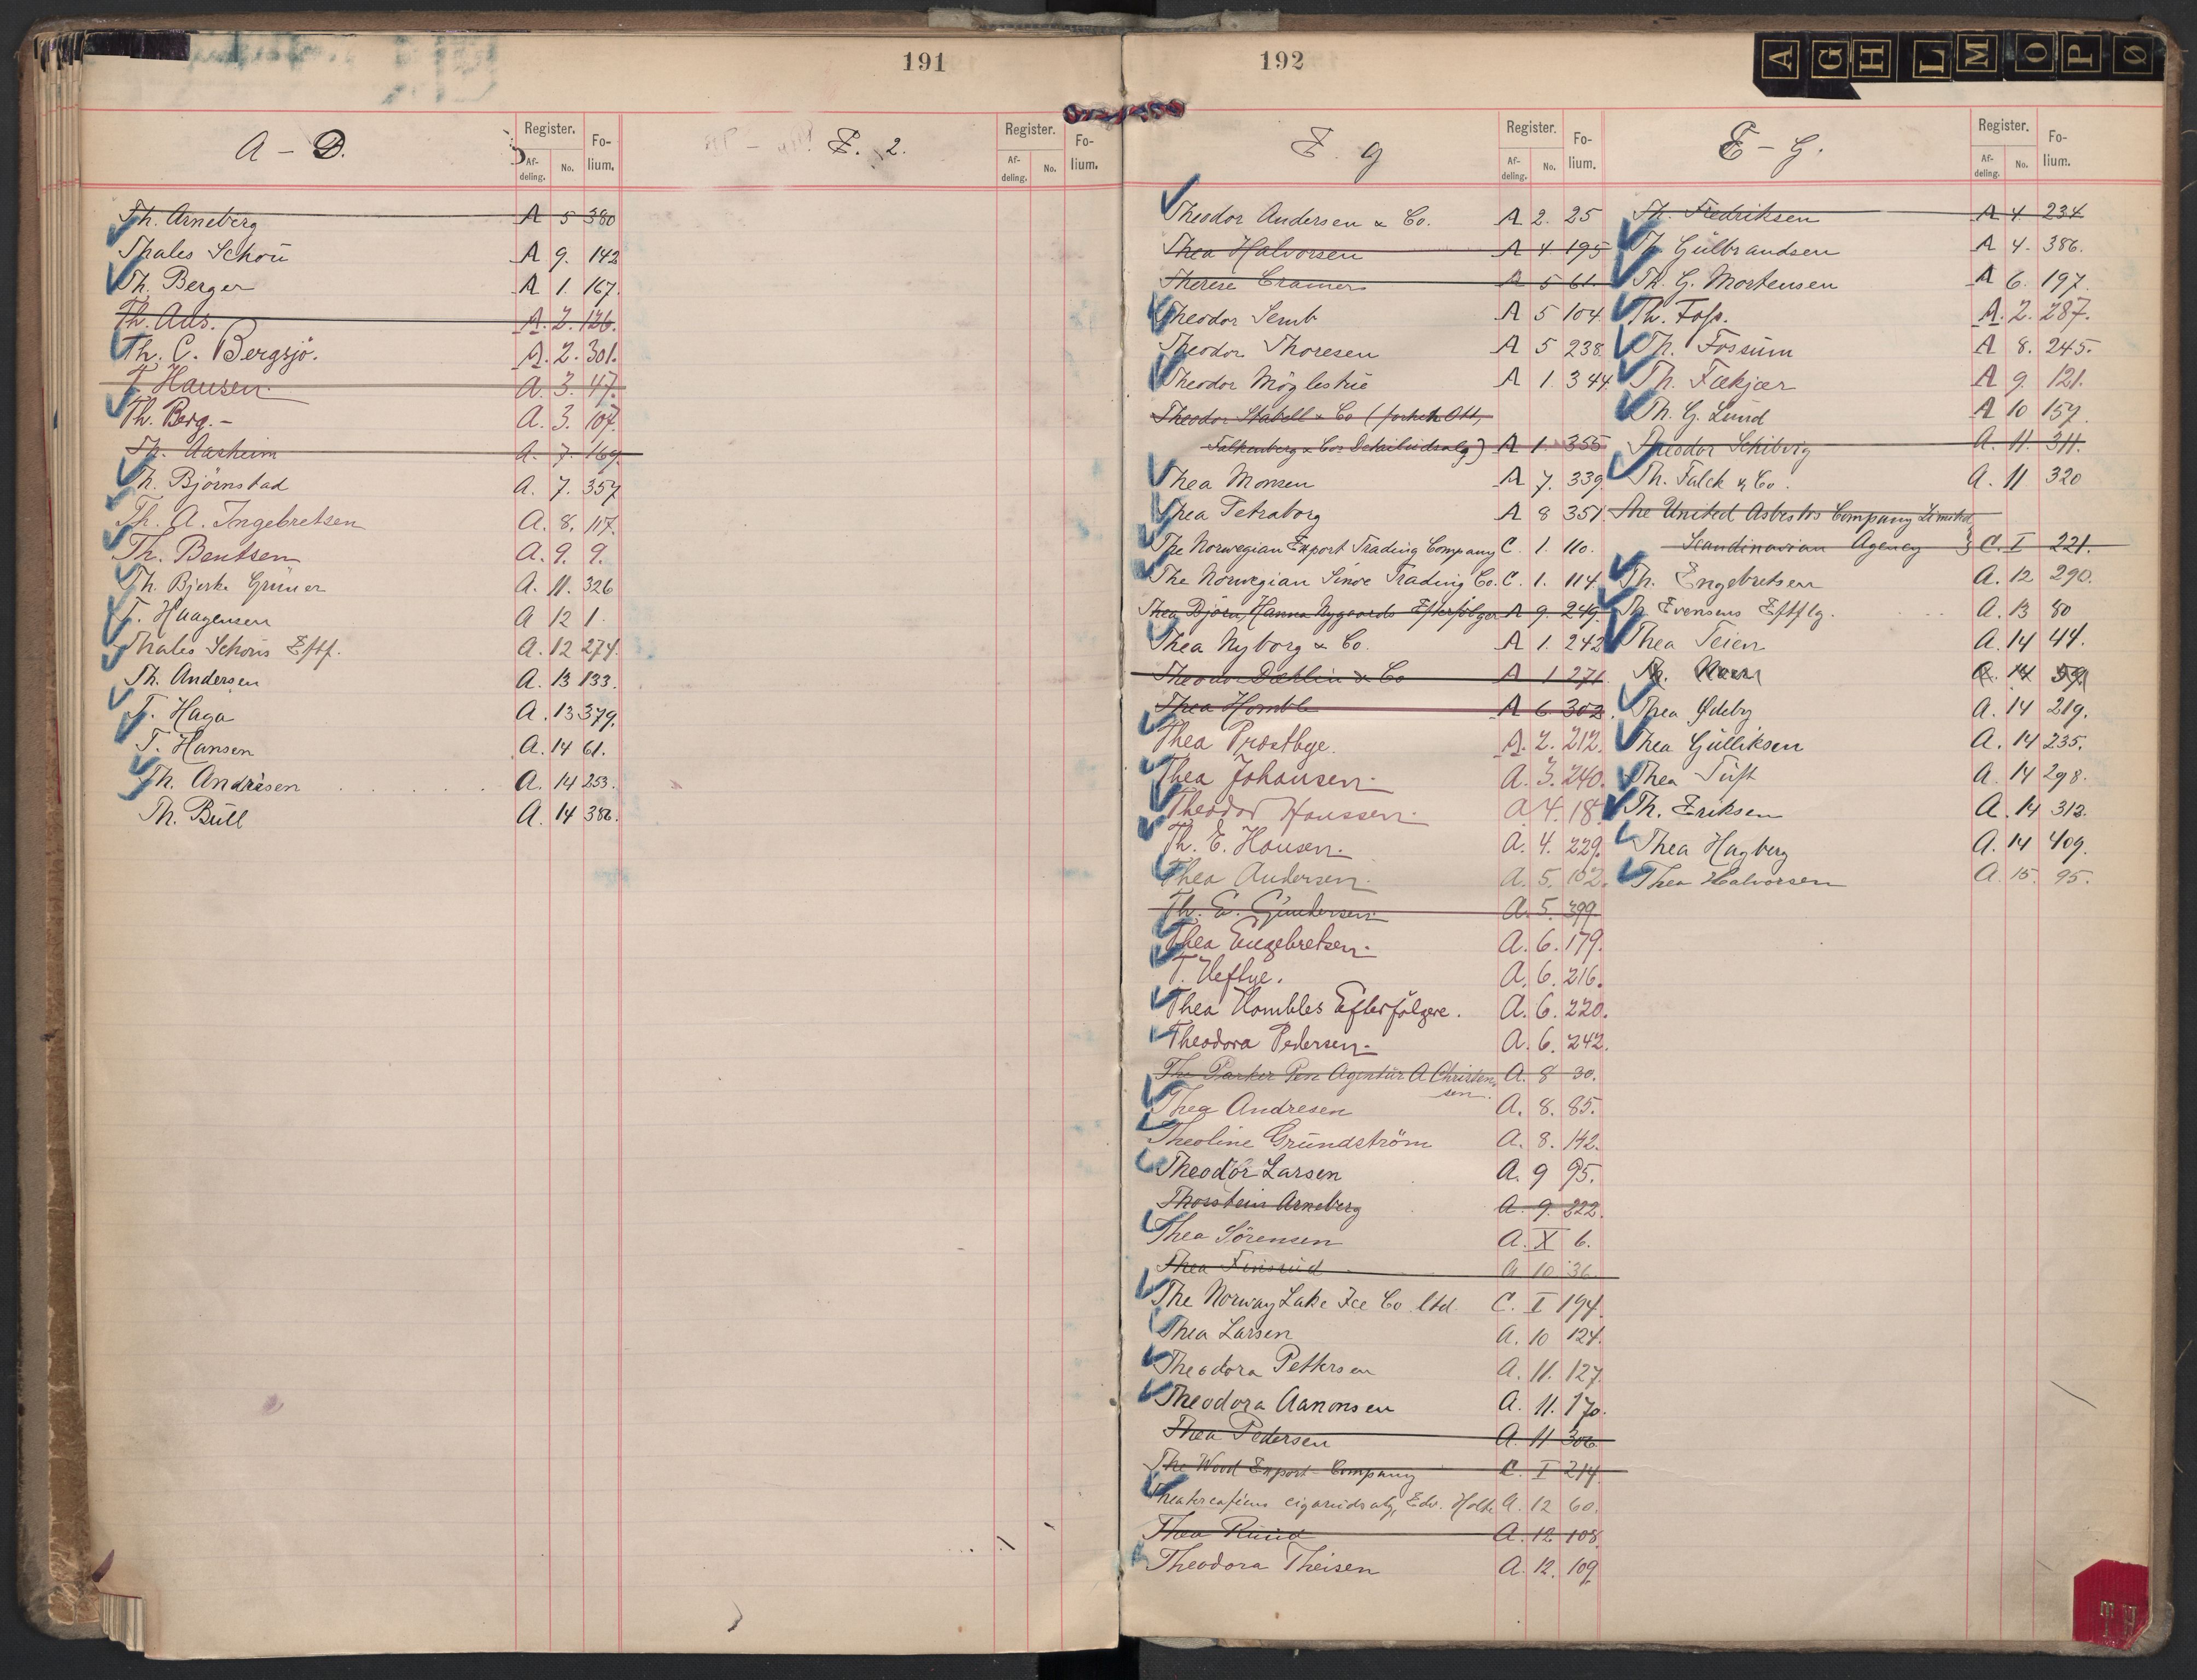 191
A – D.
Register.
Fo-
lium.
Af-
deling.
No.
Th. Arneberg A 5 380
Thales Schou A 9. 142
Th. Berger A 1. 167.
Th. Aas. A. 2. 126.
Th. C. Bergsjö. A. 2. 301.
T Hansen. A. 3. 47.
Th. Berg. – A. 3. 107.
Th. Aasheim A. 7. 169.
Th. Björnstad A. 7. 357
Th. A. Ingebretsen A. 8. 117.
Th. Bentsen A. 9. 9.
Th. Bjerke Grüner A. 11. 326
T. Haagensen A 12 1.
Thales Schous Eftf. A. 12 274.
Th. Andersen A. 13 133.
T. Haga A. 13 379.
T. Hansen A. 14 61.
Th. Andrésen A. 14 253.
Th. Bull A. 14 386.
E. 2.
Register.
Fo-
lium.
Af-
deling.
No.
192
E. g
Register.
Fo-
lium.
Af-
deling.
No.
Theodor Andersen & Co. A 2. 25
Thea Halvorsen A 4. 195
Therese Cramer A 5 61.
Theodor Semb A 5 104.
Theodor Thoresen A 5 238.
Theodor Möglestue A 1. 344.
Theodor Stabell & Co (forhen Ott,
Falkenberg & Cos Detailudsalg) A 1. 355
Thea Monsen A 7. 339.
Thea Tetraborg A 8 351.
The Norwegian Export Trading Company C. 1. 110.
The Norwegian Trading Co. C. 1. 114
Thea Björn, Hanna Nygaards Efterfölger A 9. 249.
Thea Nyborg & Co. A 1. 242
Theodor Dæhlin & Co A 1 271.
Thea Homble A 6. 302.
Thea Præstbye. A. 2. 212.
Thea Johansen. A. 3. 240.
Theodor Haussen. A. 4. 18.
Th. E. Hansen. A. 4. 229.
Thea Andersen. A. 5. 102.
Th. E. Gundersen. A. 5. 399.
Thea Engebretsen. A. 6. 179.
T. Heftye. A. 6. 216.
Thea Hombles Efterfölgere. A. 6. 220.
Theodora Pedersen. A. 6. 242.
The Parker Pen Agentur A Christen-
sen. A. 8 30.
Thea Andresen A. 8. 85.
Theoline Grundström A. 8. 142.
Theodor Larsen A. 9 95.
Thorstein Arneberg A. 9. 222.
Thea Sörensen A. X 6.
Thea Finsrud A 10 36
The Norway Lake Ice Co. ltd. C. I 194.
Thea Larsen A. 10 124.
Theodora Pettersen A. 11. 127.
Theodora Aanonsen A. 11. 170.
Thea Pedersen A. 11 306
The Wood Export Company C. I 214.
Theaterkaféens cigarudsalg, Edv. Holte A. 12 60.
Thea Ruud A. 12 108.
Theodora Theisen A. 12. 109.
E – G.
Register.
Fo-
lium.
Af-
deling.
No.
Th. Fredriksen A 4. 234
Th Gulbrandsen A 4. 386.
Th. G. Mortensen A 6. 197.
Th. Foss. A. 2. 287.
Th. Fossum A 8. 245.
Th. Fækjær A 9. 121.
Th. G. Lund A 10 157
Theodor Schibvig A. 11. 311.
Th. Falck & Co. A. 11 320
The United Asbestos Company Limited,
Scandinavian Agency } C. I 221.
Th. Engebretsen A. 12 290.
Th Evensens Eftflg. A. 13 80
Thea Teien A. 14 44.
Th. A. 14 59
Thea Ødeby A. 14 219.
Thea Gulliksen A. 14 235.
Thea Tuft A. 14 298.
Th. Eriksen A. 14 312.
Thea Hagberg A. 14 409.
Thea Halvorsen A. 15. 95.
A G H L M O P Ø
TH